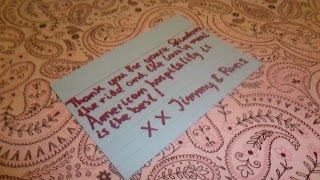 Thank you for your kindness
the ride! and the lovely meal
American hospitality is
is the best!
x x Jimmy & Roni